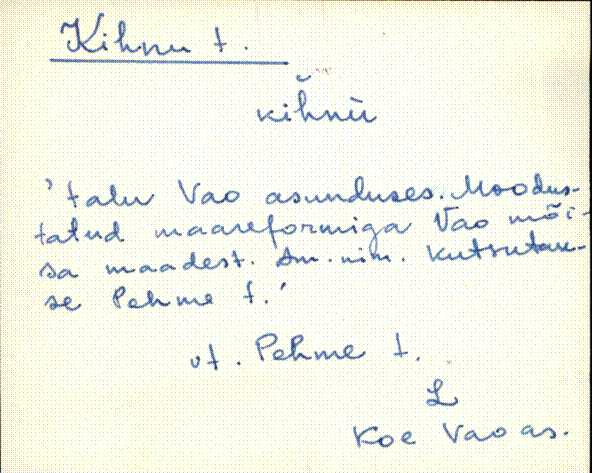 Kihnu t.
kĭhnù
'talu Vao asunduses. Moodus-
tatud maareformiga Vao mõi-
sa maadest. Am. nim. kutsutak-
se Pehme t.'
vt. Pehme t.
L
Koe Vao as.